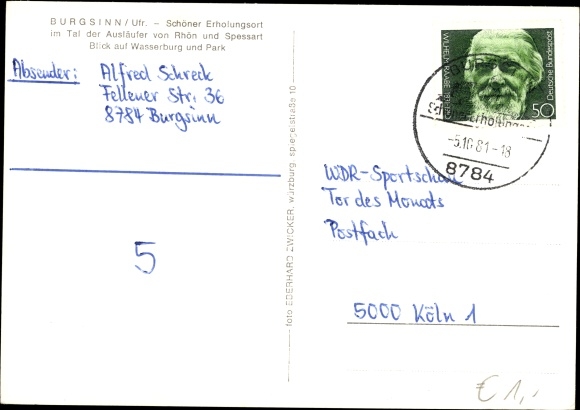 BURGSINN/Ufr. – Schöner Erholungsort
im Tal der Ausläufer von Rhön und Spessart
Blick auf Wasserburg und Park
Absender: Alfred Schreck
Fellener Str. 36
8784 Burgsinn
5
foto EBERHARD ZWICKER, würzburg, spiegelstraße 10
WILHELM RAABE
Deutsche Bundespost
50
-5.10.81-18
8784
WDR-Sportschau
Tor des Monats
Postfach
5000 Köln 1
€ 1,-